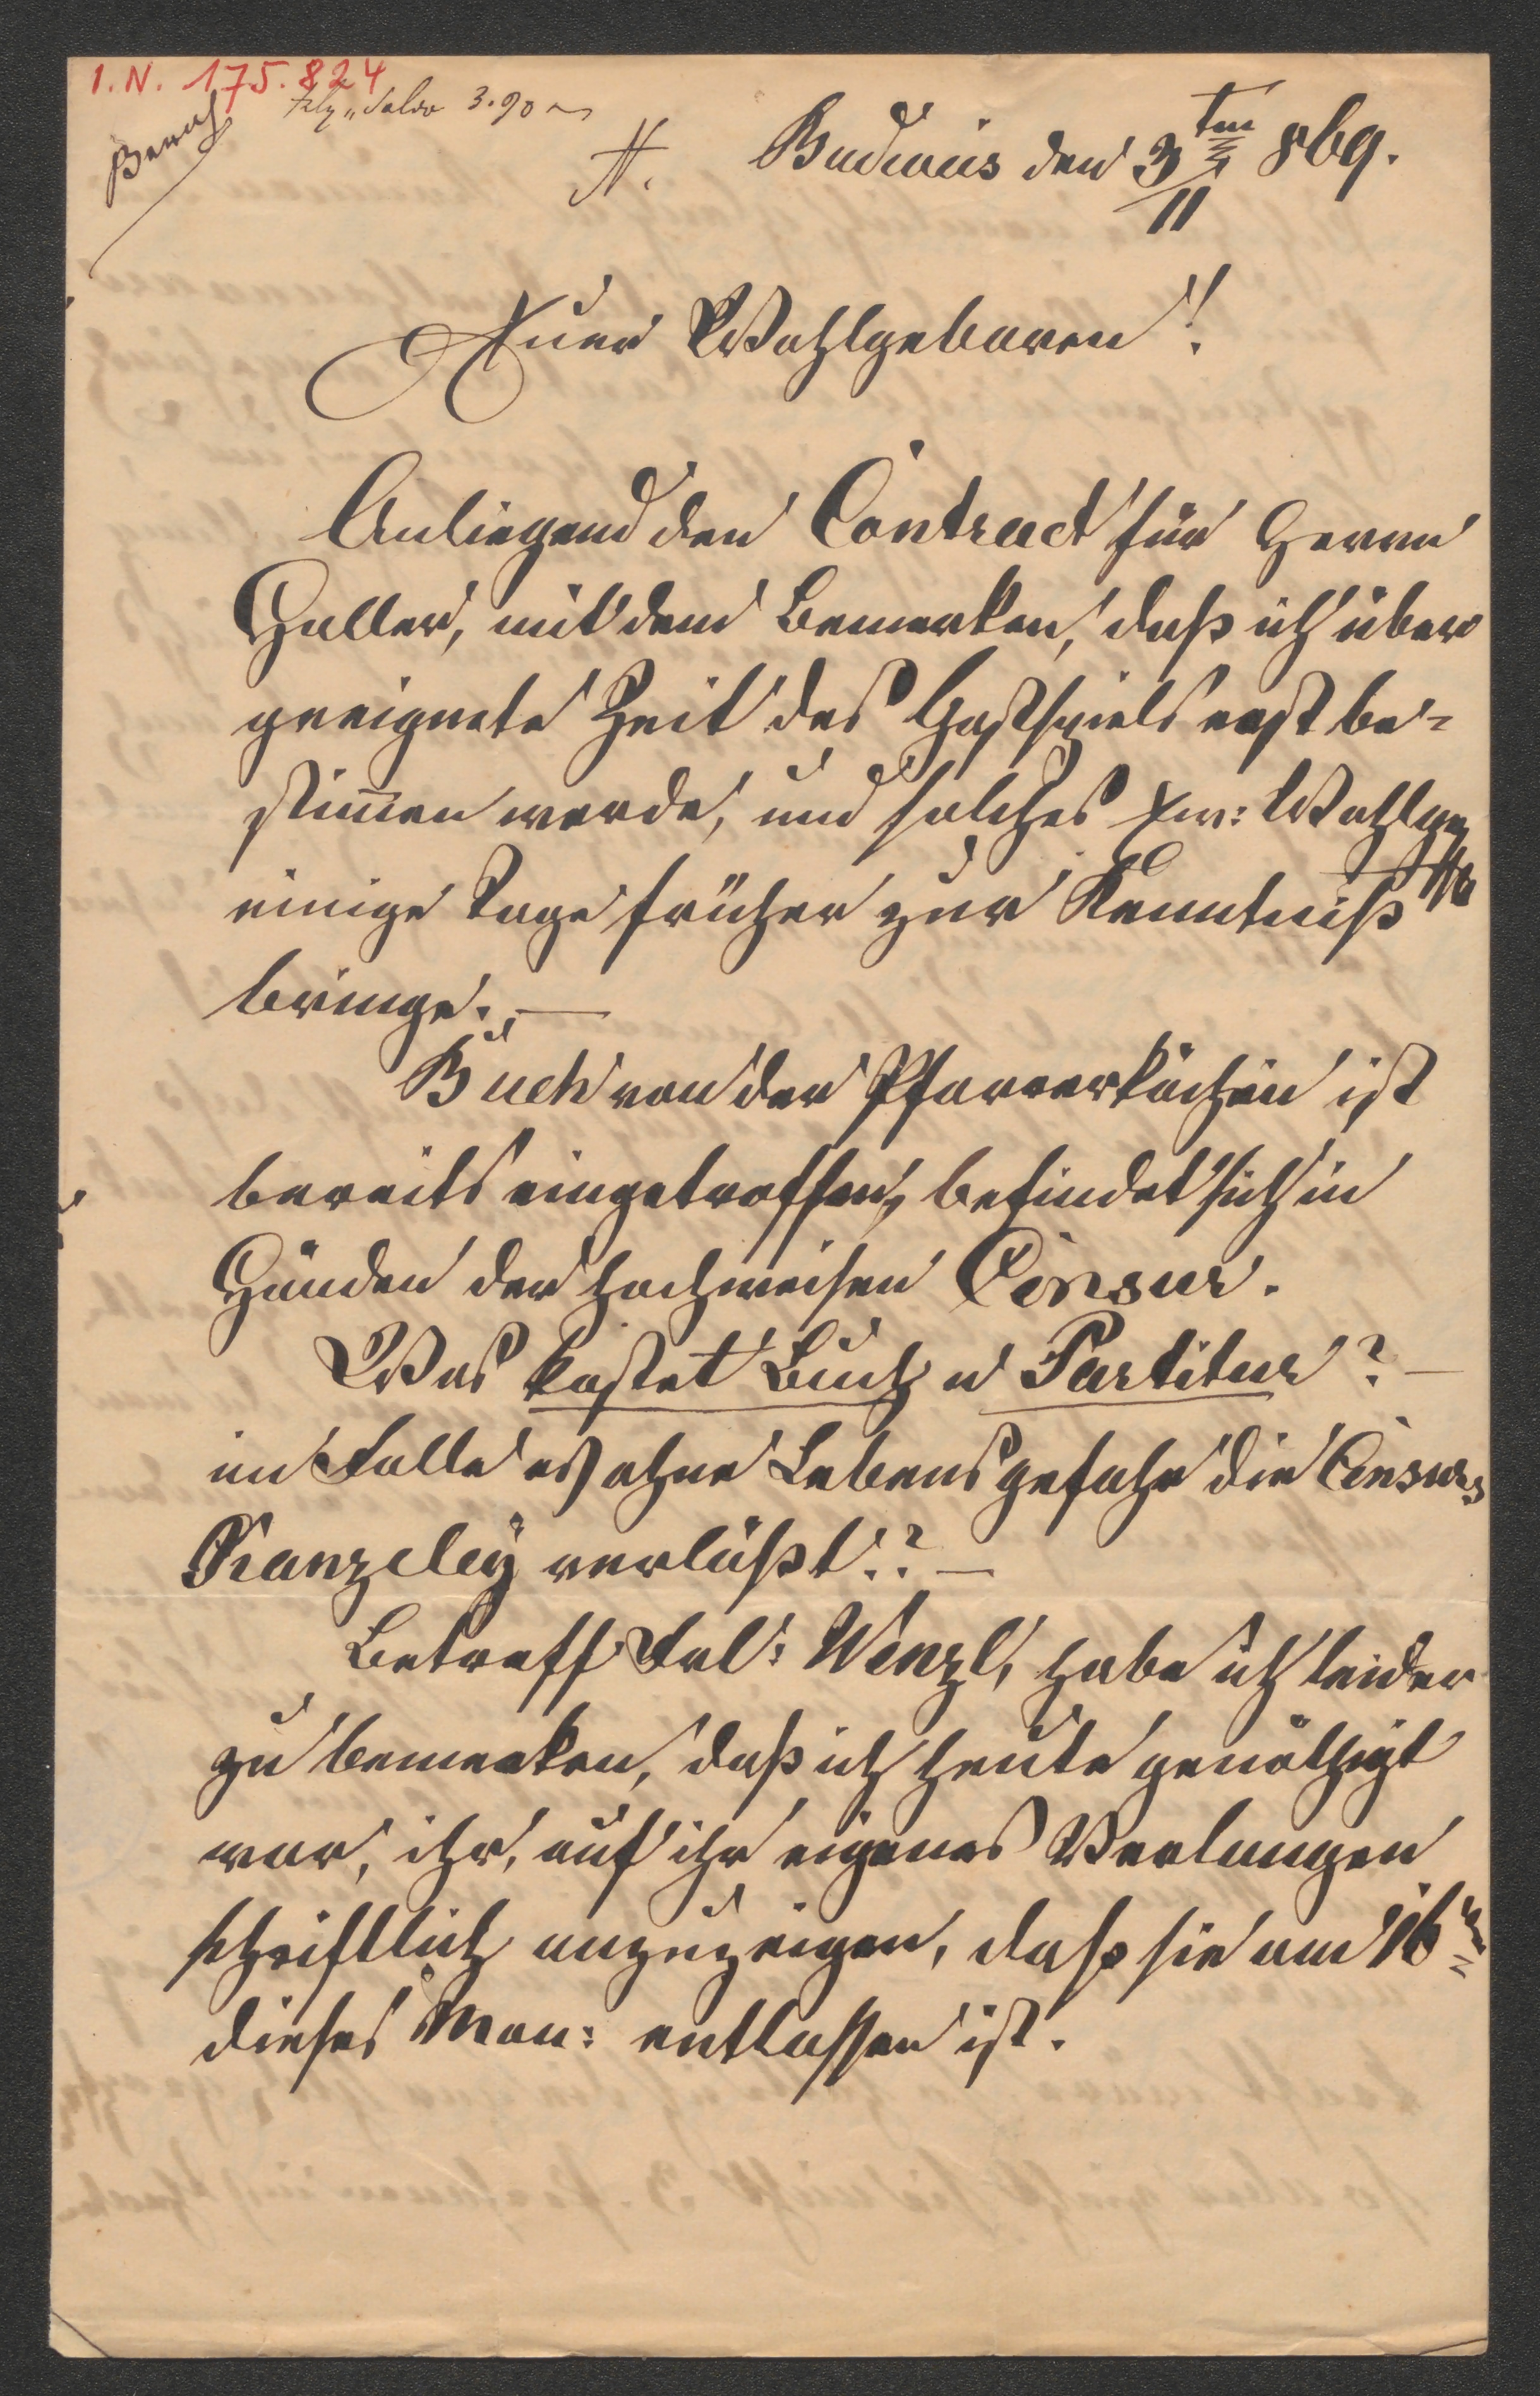 I.N. 175.824
Saldo 3.90
Budweis den 3tm/11 869.
Euer Wohlgeboren!
Anliegend den Contract für Herrn
Haller, mit dem Bemerken, daß ich über
geeignete Zeit des Gastspiels erst be-
stim̅en werde, und solches Ew: Wohlge
einige Tage früher zur Kenntniß
bringe. —
Buch von der Pfarrersköchin ist
bereits eingetroffen, befindet sich in
Händen der hochweisen Censur.
Was kostet Buch u Partitur? —
im Falle es ohne Lebensgefahr die Censurs
Kanzeley verläßt?? —
Betreff Frl: Wenzl, habe ich leider
zu bemerken, daß ich heute genöthigt
war, ihr, auf ihr eigenes Verlangen
schriftlich anzuzeigen, daß sie am 16tn
dieses Mon: entlassen ist.